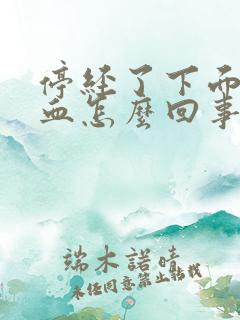 停经了下面
血怎麼回事
端木諾晴
未经同意禁止转载